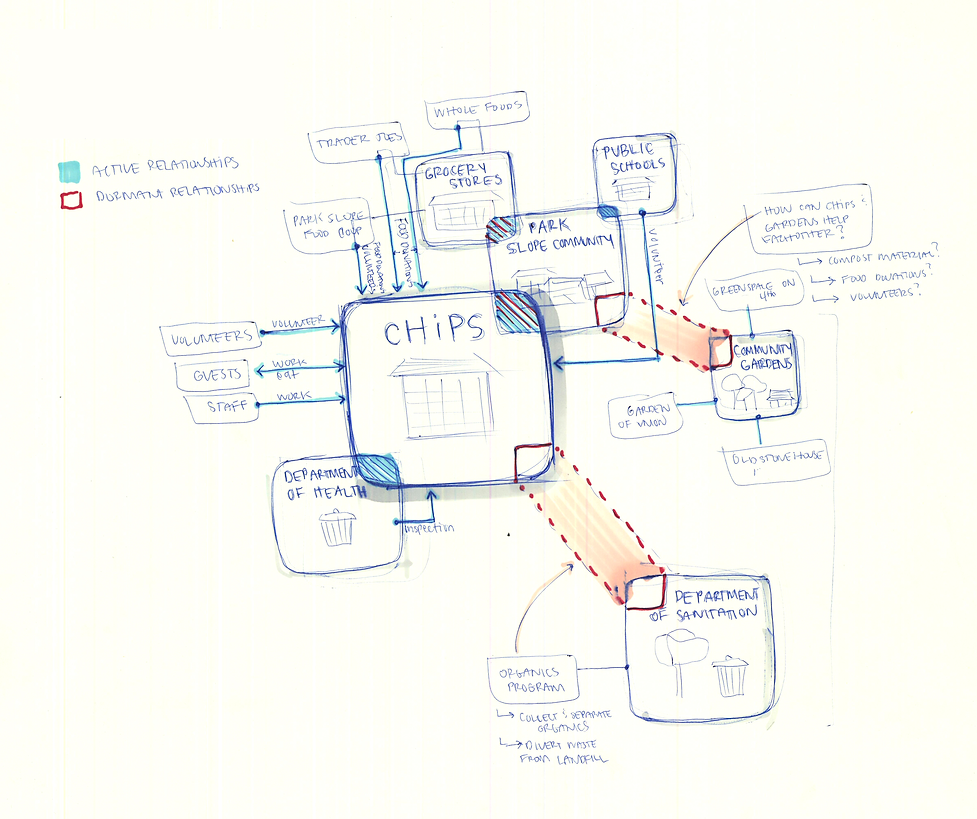 WHOLE FOODS
TRADER JOES
ACTIVE RELATIONSHIPS
DORMANT RELATIONSHIPS
GROCERY
STORES
PUBLIC
SCHOOLS
PARK SLOPE
FOOD COOP
PARK
SLOPE COMMUNITY
HOW CAN CHIPS &
GARDENS HELP
EACHOTHER?
COMPOST MATERIAL?
FOOD DONATIONS?
VOLUNTEERS?
VOLUNTEERS
FOOD DONATIONS
VOLUNTEER
GREENSPACE ON
4TH
CHiPS
VOLUNTEERS
VOLUNTEER
GUESTS
WORK
eat
STAFF
WORK
COMMUNITY
GARDENS
GARDEN
OF UNION
OLD STONE HOUSE
DEPARTMENT
OF HEALTH
inspection
DEPARTMENT
OF SANITATION
ORGANICS
PROGRAM
COLLECT & SEPARATE
ORGANICS
DIVERT WASTE
FROM LANDFILL